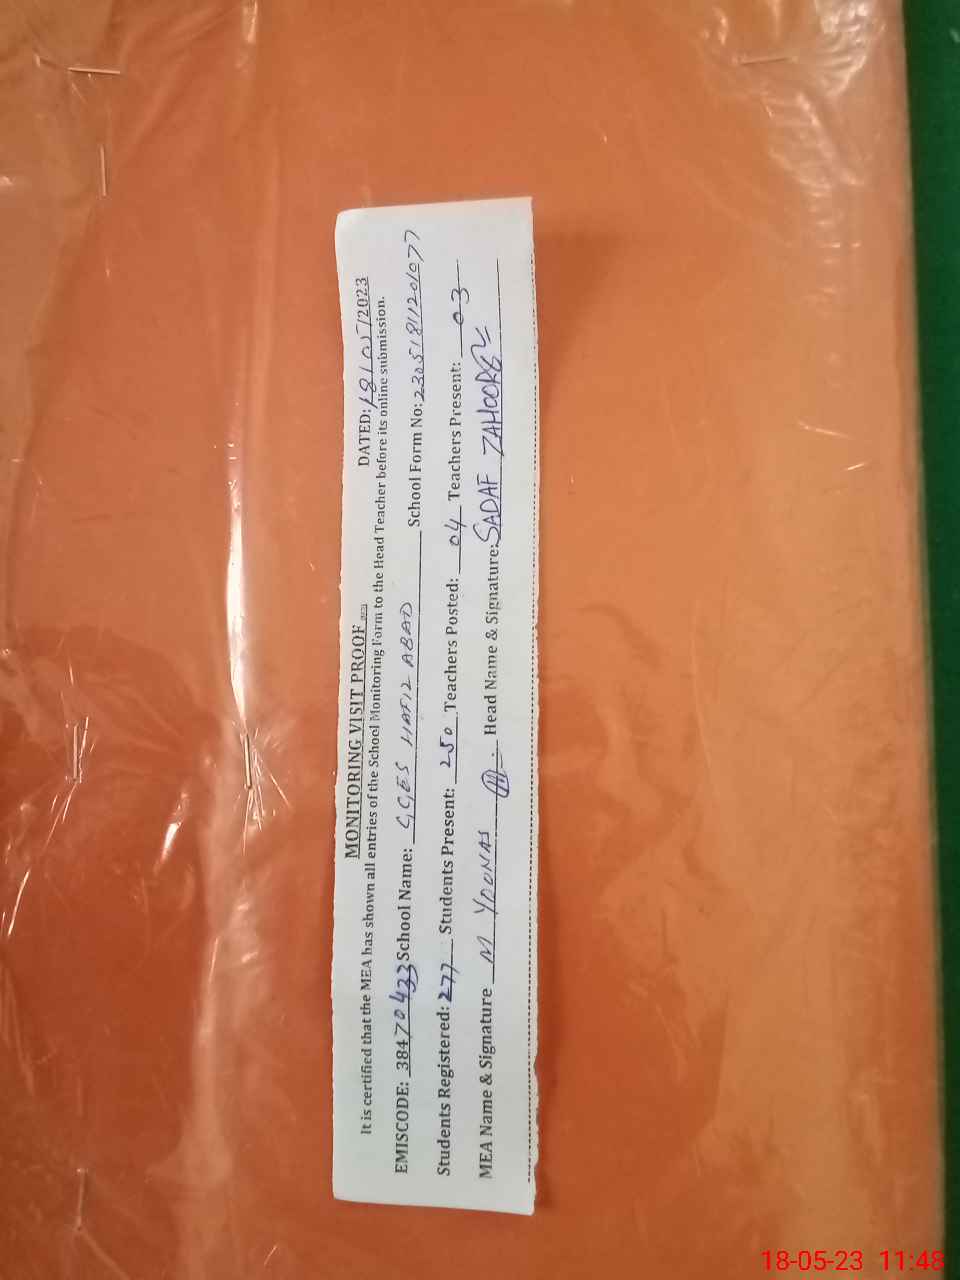 MONITORING VISIT PROOF
DATED: 18/05/2023
It is certified that the MEA has shown all entries of the School Monitoring Form to the Head Teacher before its online submission.
EMISCODE: 38470433 School Name: GGES HAFIZ ABAD School Form No: 23051811201077
Students Registered: 277 Students Present: 250 Teachers Posted: 04 Teachers Present: 03
MEA Name & Signature M YOONAS Head Name & Signature: SADAF ZAHOOR
18-05-23 11:48